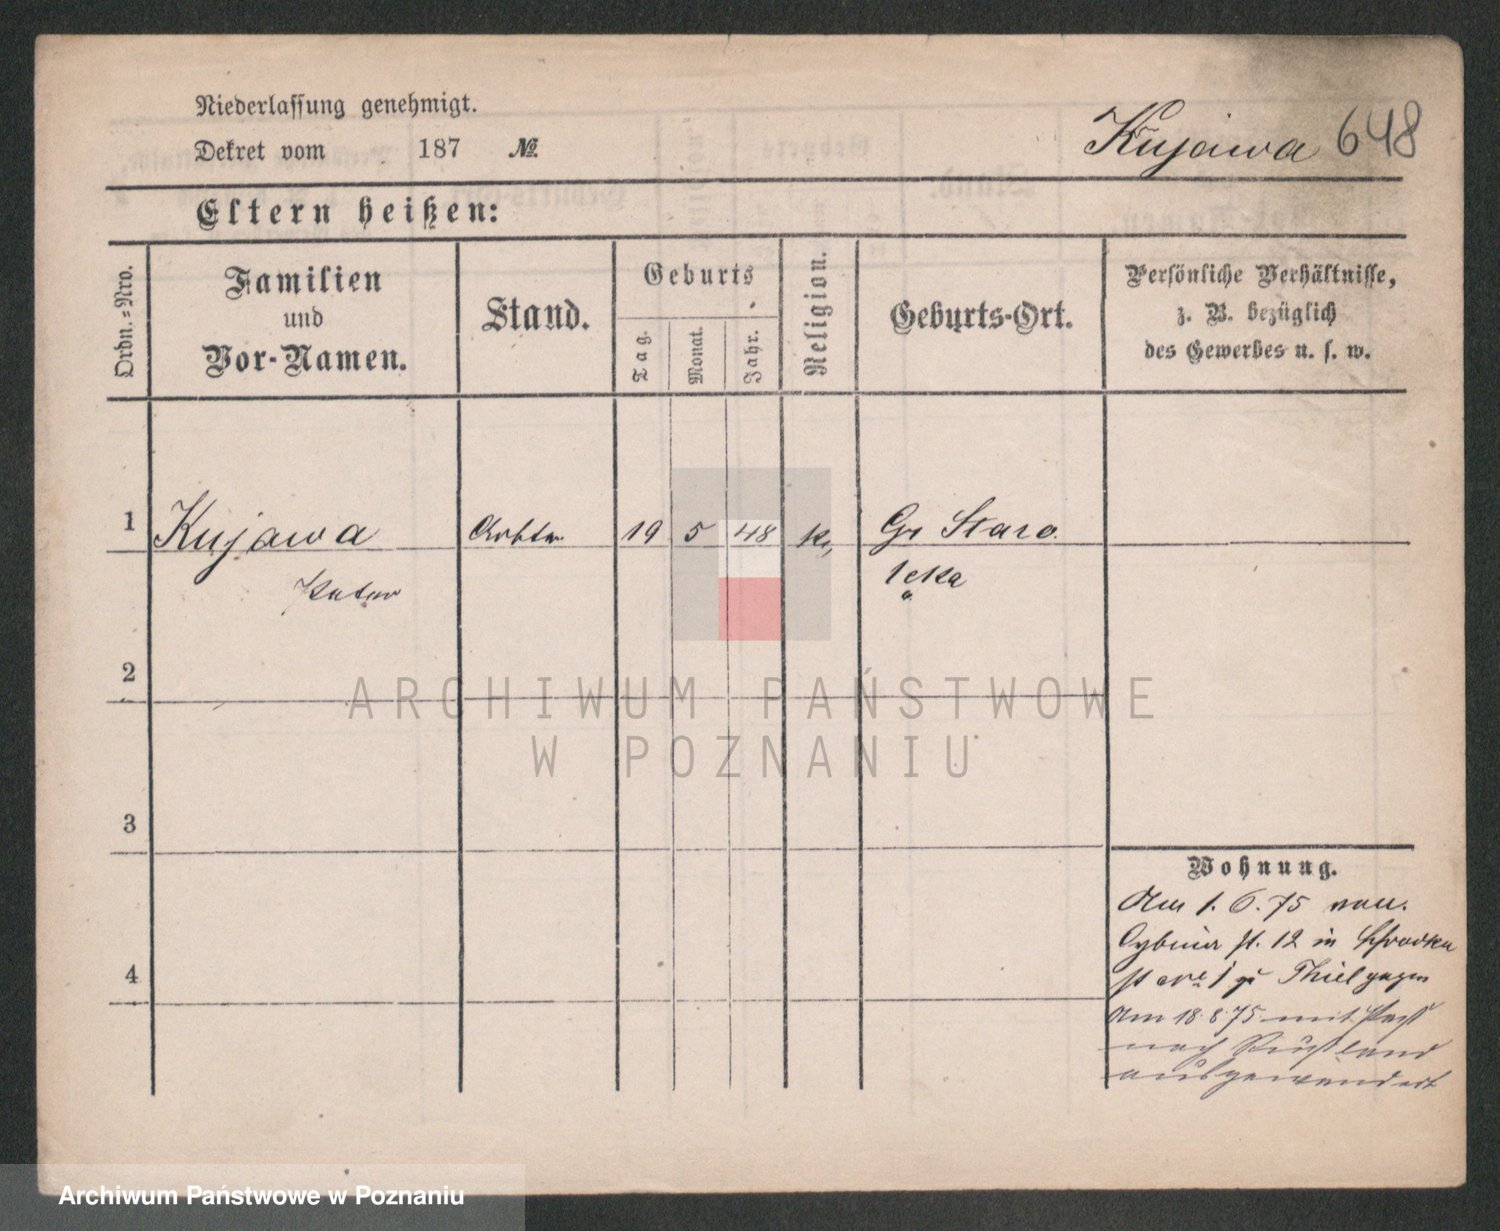 Niederlassung genehmigt.
Dekret vom 187 №
Kujawa 648
Eltern heißen:
Ordn.-Nro.
Familien
und
Vor-Namen.
Stand.
Geburts
Tag.
Monat.
Jahr.
Religion.
Geburts-Ort.
Persönliche Verhältnisse,
z. B. bezüglich
des Gewerbes u. s. w.
1 Kujawa 19 5 48 Gr Staro
Peter
lęka
2
ARCHIWUM PAŃSTWOWE
W POZNANIU
3
Wohnung.
Am 1. 6. 75 von
Cybina st. 12 in Schrodka
st № 1 zu Thiel gezogen
Am 18 8 75 mit Paß
nach Rußland
ausgewandert
4
Archiwum Państwowe w Poznaniu